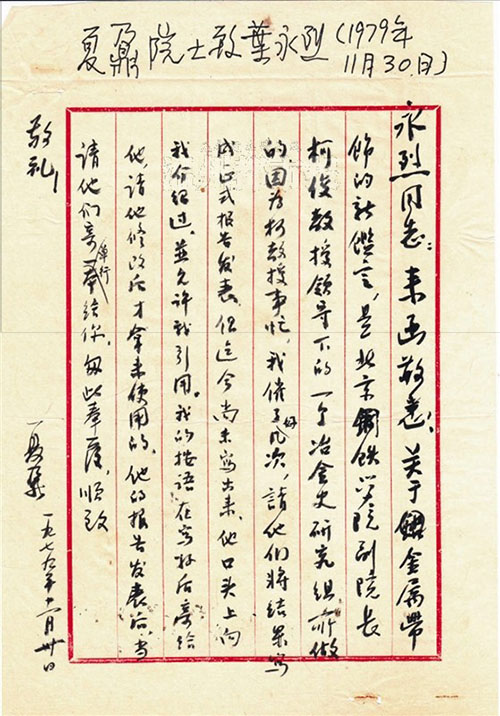 夏鼐院士致葉永烈(1979年
11月30日)
永烈同志：来函敬悉。关于铝金属带
饰的新鑑定，是北京钢铁学院副院长
柯俊教授领导下的一个冶金史研究组所做
的。因为柯教授事忙，我催了好几次，請他们将结果写
成正式报告发表，但迄今尚未写出来。他口头上向
我介绍过，並允许我引用。我的按语，在写好后寄给
他，請他修改后才拿来使用的。他的报告发表后，当
請他们寄单行本给你。匆此奉覆，順致
敬礼
夏鼐
一九七九年十一月卅日